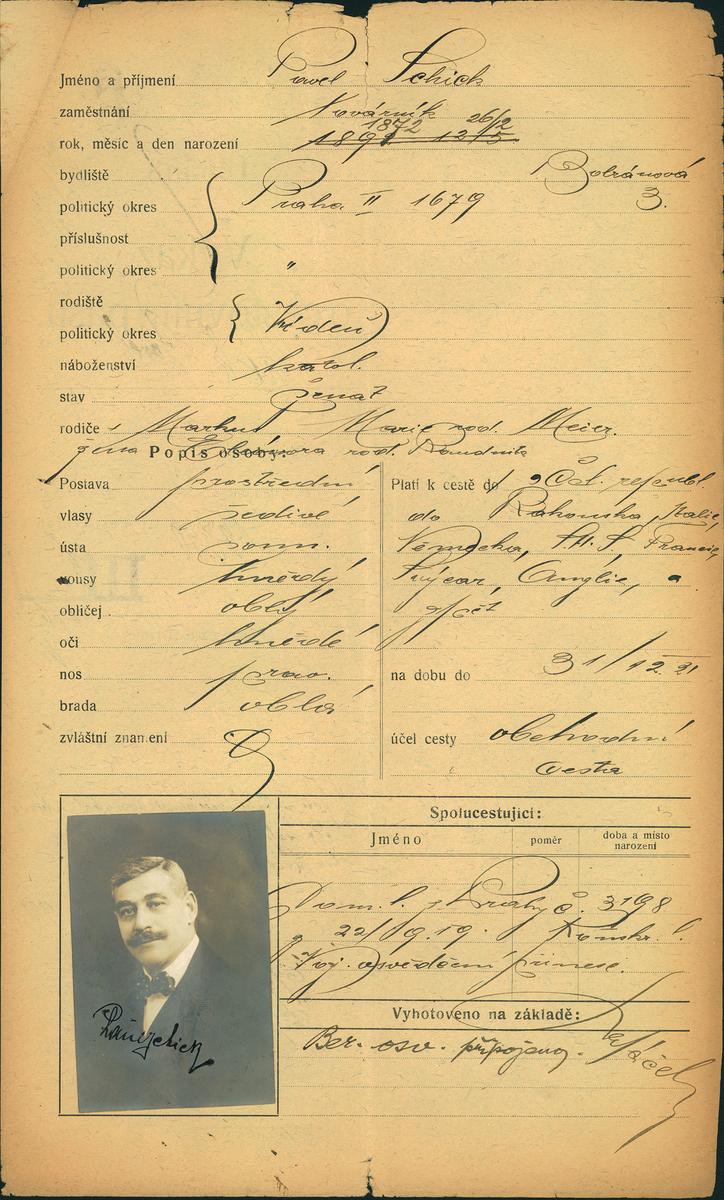 Jméno a příjmení Pavel Schick
zaměstnání Továrník
rok, měsíc a den narození 1872 26/2
bydliště
politický okres Praha II 1679 3.
příslušnost
politický okres "
rodiště
politický okres Vídeň
náboženství katol.
stav ženat
rodiče Markus Marie rod. Meier.
žena Eleonora rod. Roudnitz
Popis osoby:
Postava prostřední
vlasy šedivé
ústa soum.
vousy hnědý
obličej oblý
oči hnědé
nos prav.
brada oblá
zvláštní znamení
Platí k cestě do Čsl. republ.
do Rakouska, Italie,
Německa, S.H.S. Francie,
Švýcar, Anglie, a
zpět
na dobu do 31/12. 21
účel cesty obchodní
cesta
Spolucestující:
Jméno poměr doba a místo narození
Dom. l. z Prahy č. 3198
z 22/9.19.
Voj. osvědčení přinese.
Vyhotoveno na základě:
Ber. osv. připojeno.